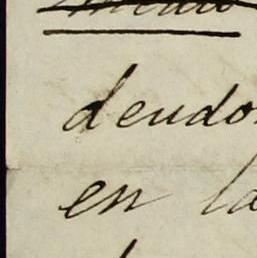 deudor
en la